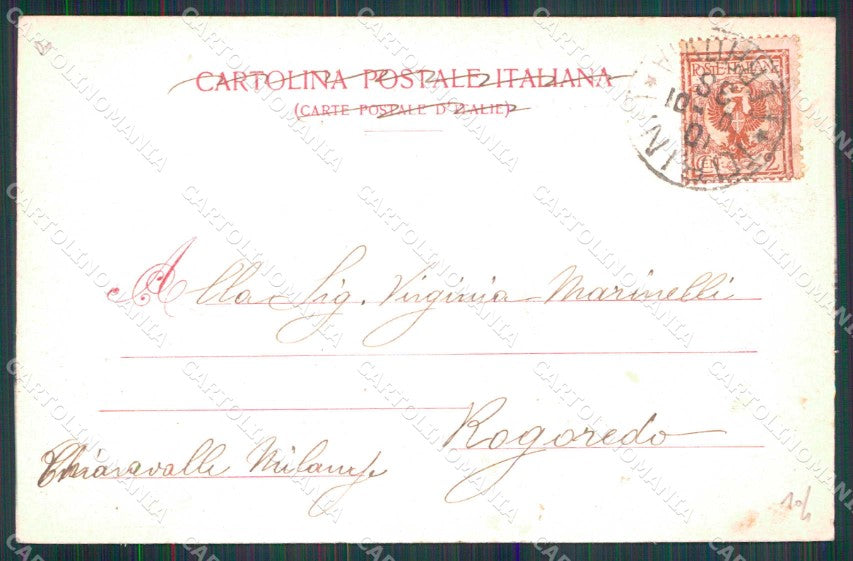 CARTOLINA POSTALE ITALIANA
(CARTE POSTALE D'ITALIE)
POSTE ITALIANE
CEN. 2
Alla Sig. Virginia Marinelli
Rogoredo
Chiaravalle Milanese
CARTOLINOMANIA